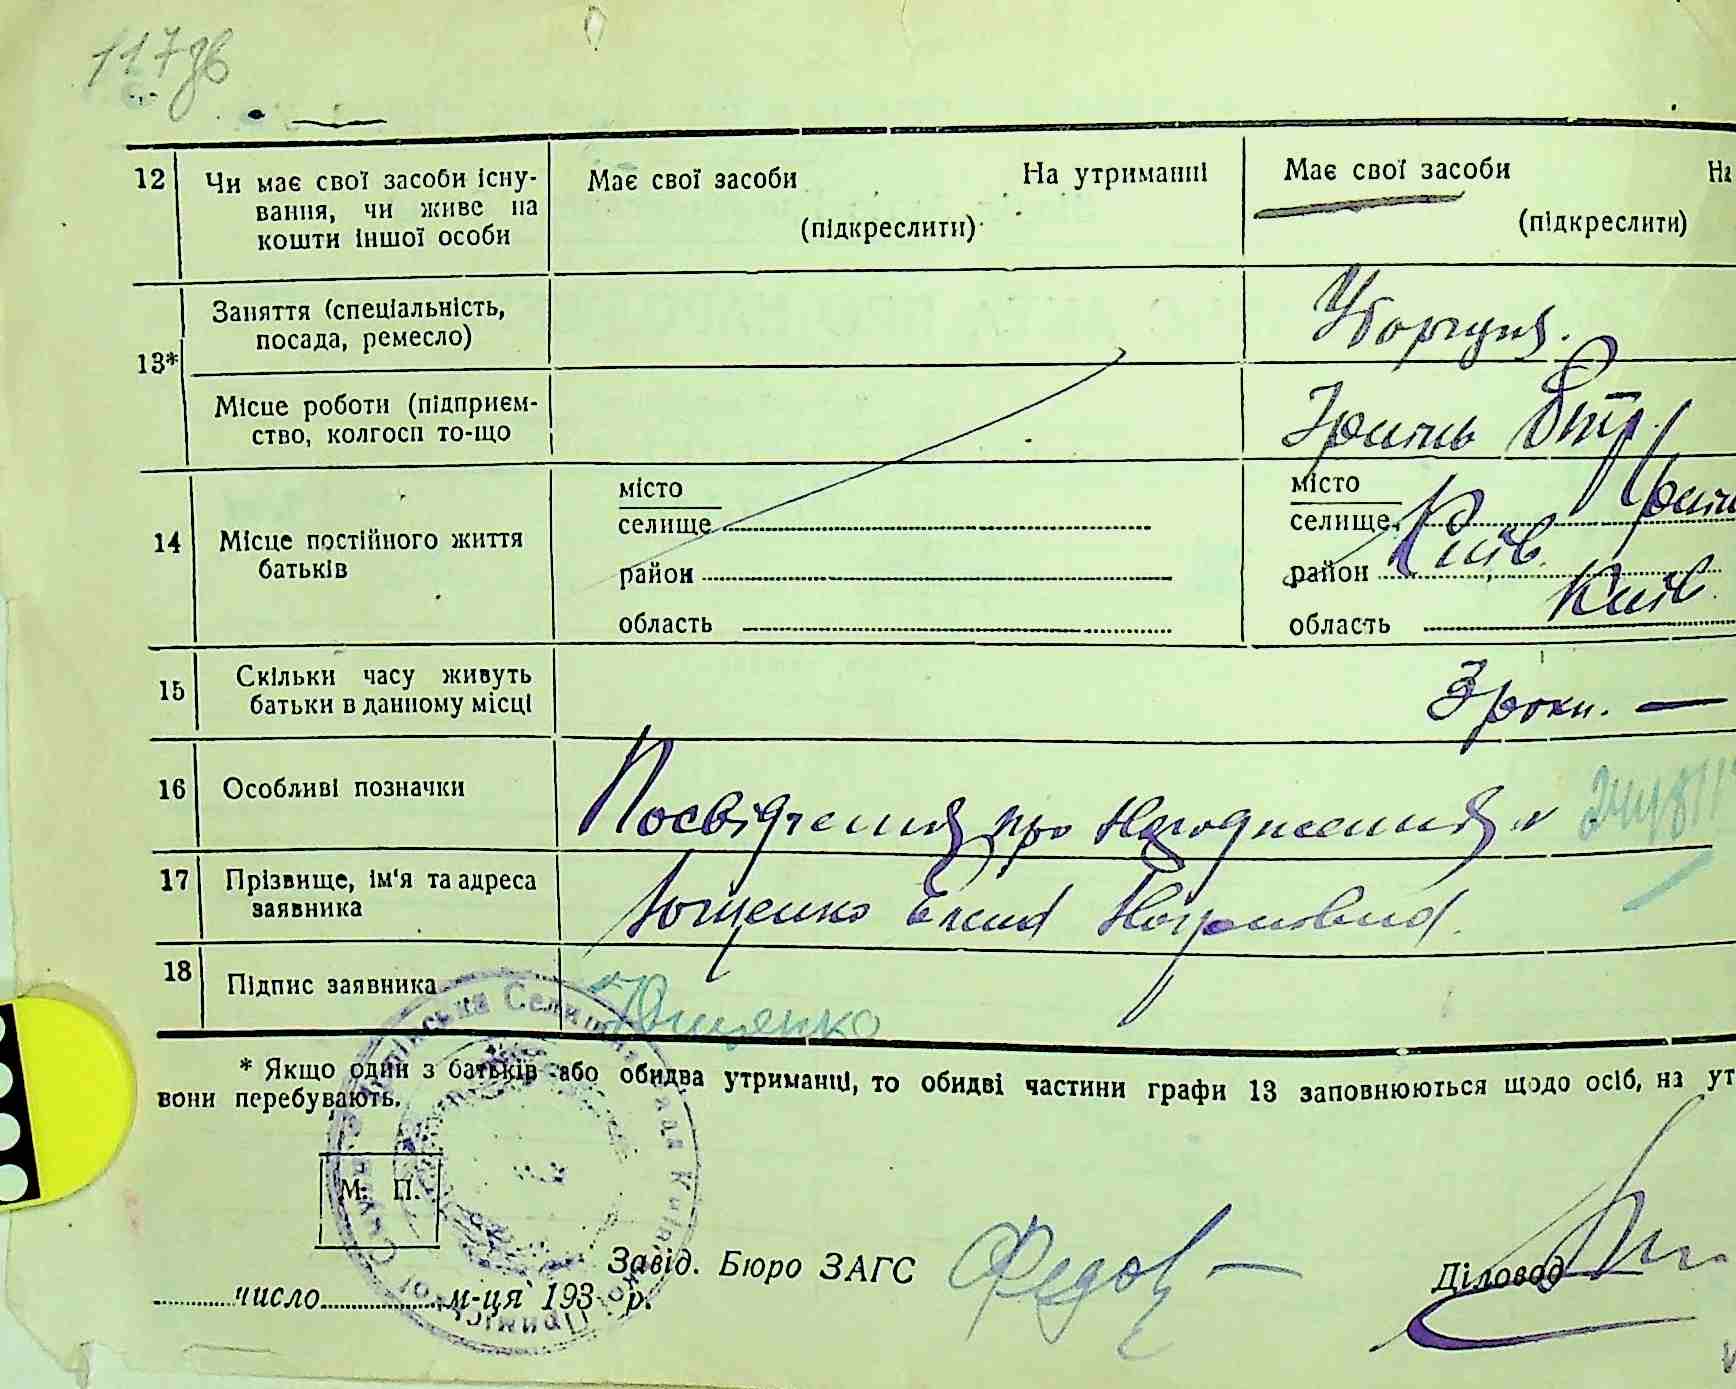 117зв
12 Чи має свої засоби існу-
вання, чи живе на
кошти іншої особи
Має свої засоби На утриманні
(підкреслити)
Має свої засоби На
(підкреслити)
13* Заняття (спеціальність,
посада, ремесло)
Уборщиця.
Місце роботи (підприєм-
ство, колгосп то-що
Ірпінь
14 Місце постійного життя
батьків
місто
селище
район
область
місто
селище
район Київ.
область Київ.
15 Скільки часу живуть
батьки в данному місці
3 роки. —
16 Особливі позначки
Посвідчення про народження
17 Прізвище, ім'я та адреса
заявника
Ющенко Елена
18 Підпис заявника
Ющенко
* Якщо один з батьків або обидва утриманці, то обидві частини графи 13 заповнюються щодо осіб, на ут
вони перебувають.
М. П.
Завід. Бюро ЗАГС
Діловод
число м-ця 193 р.